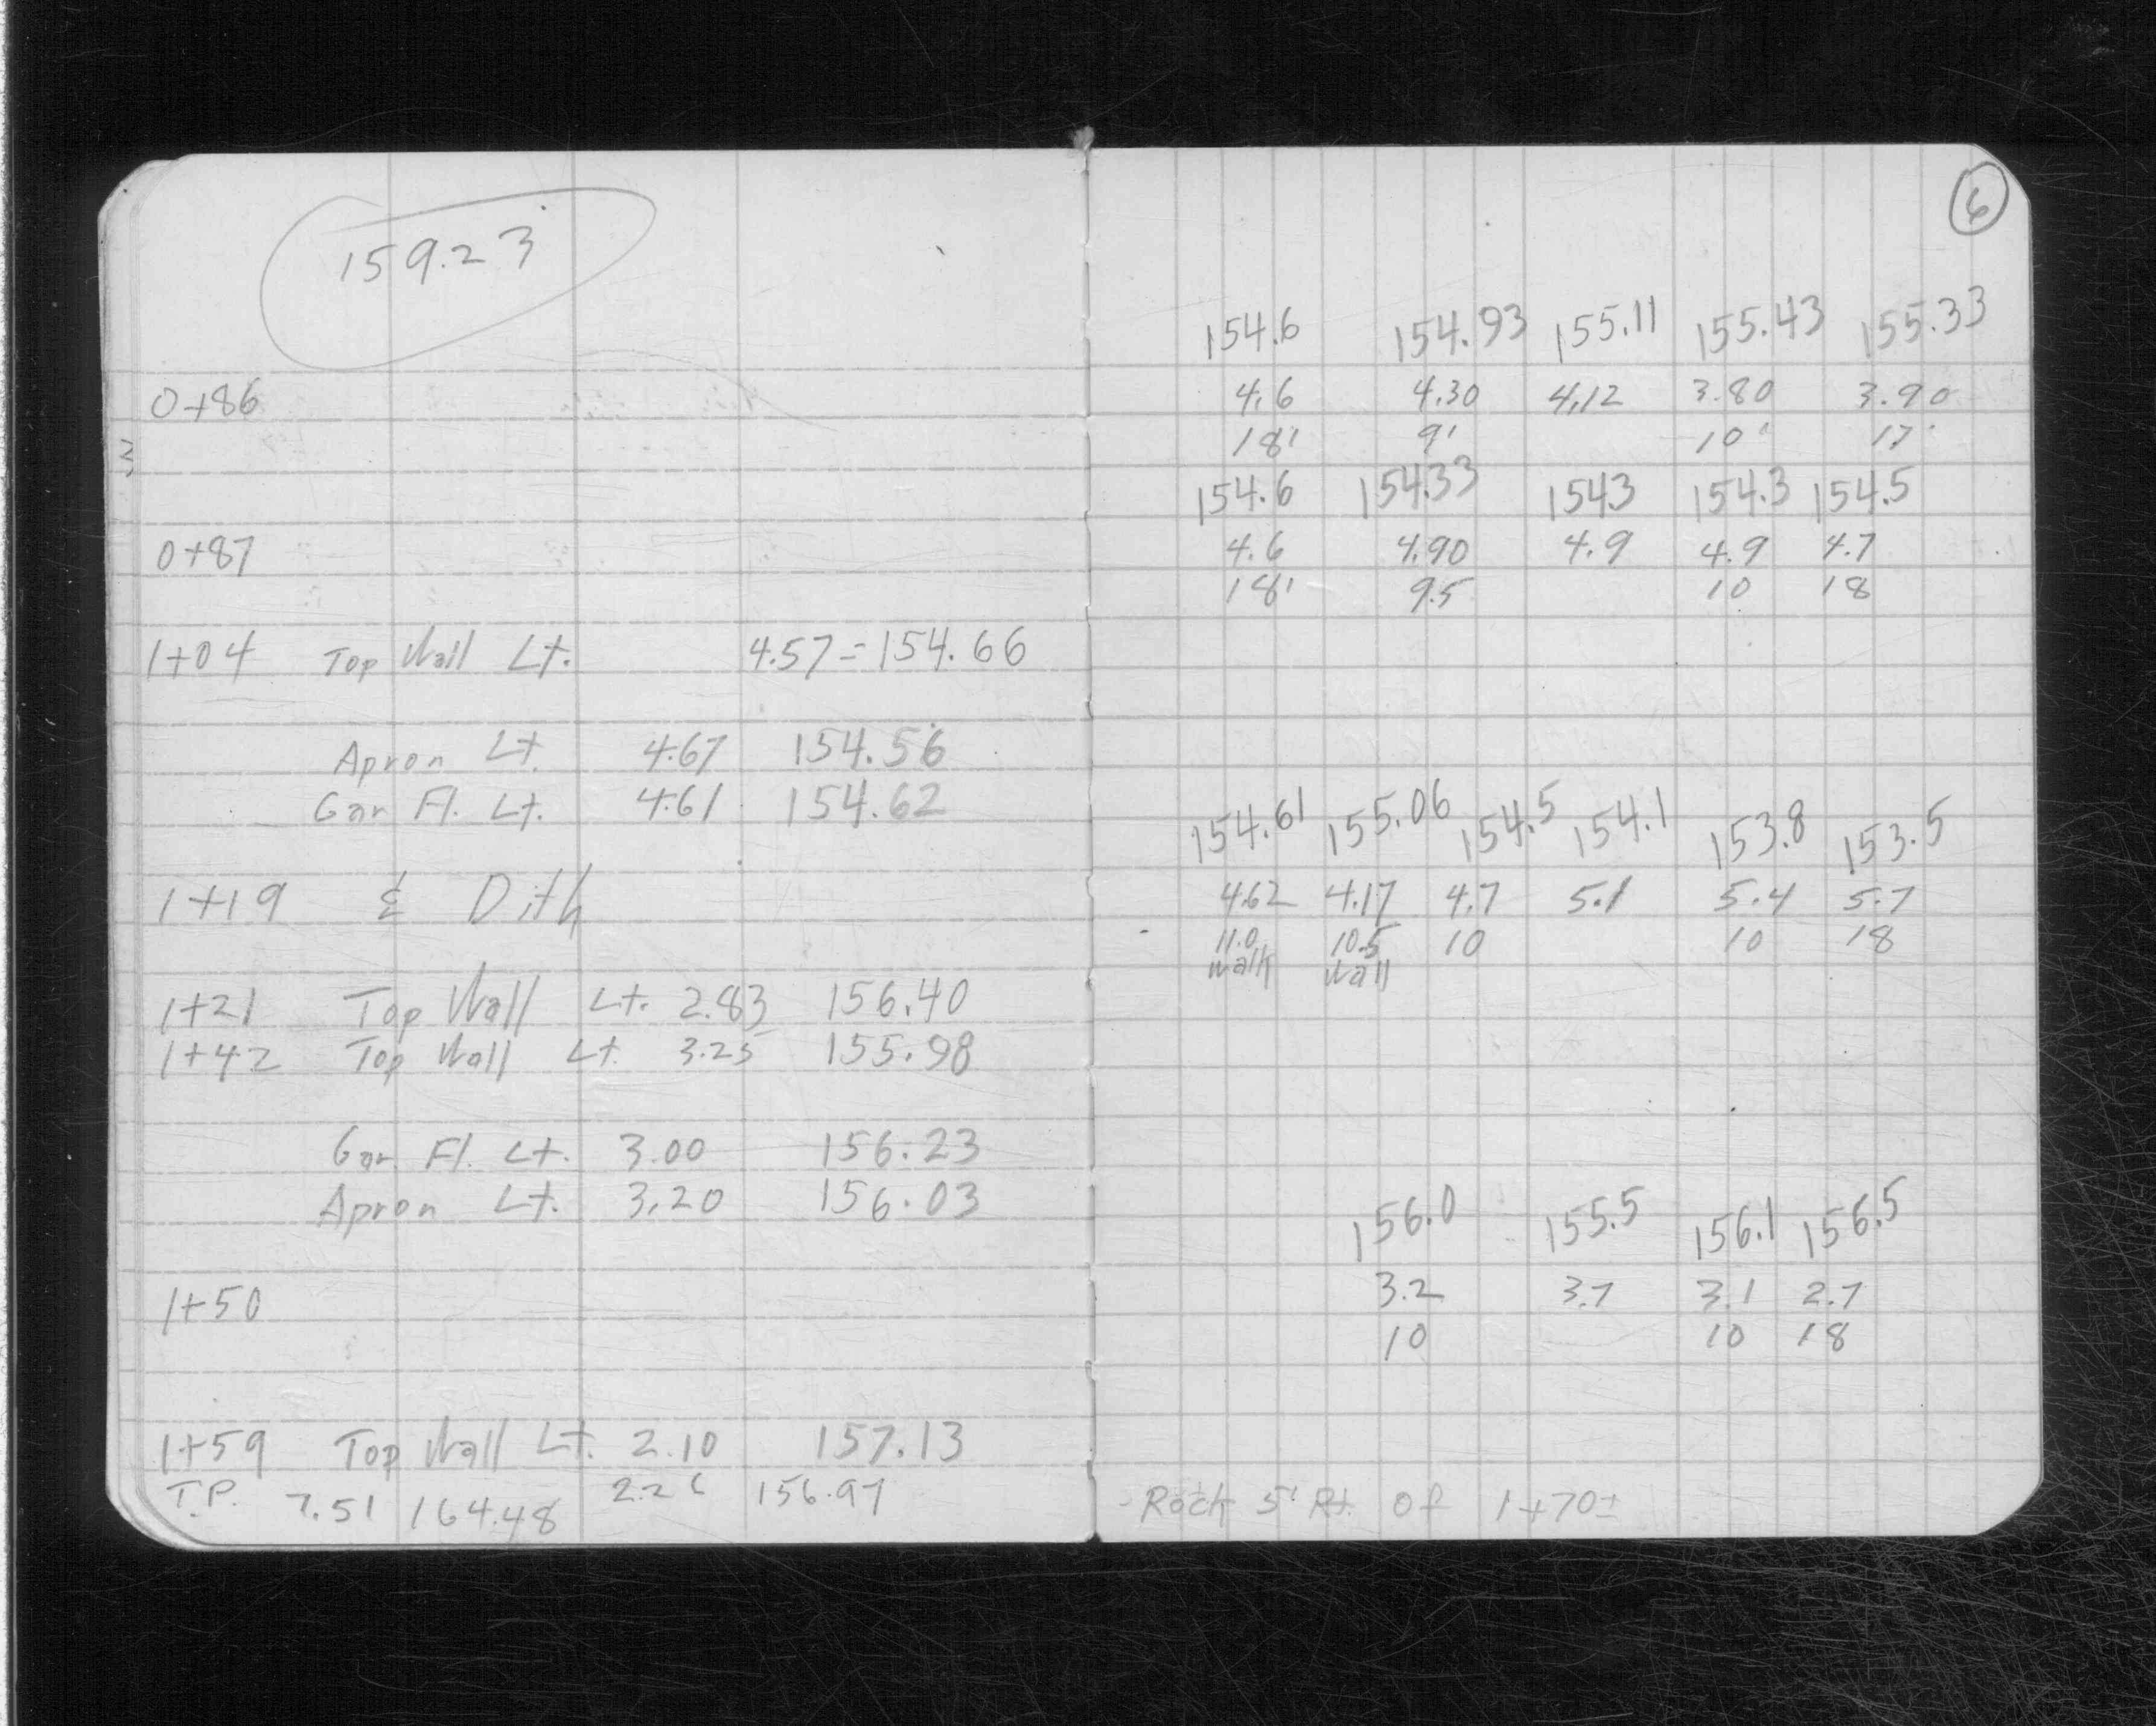 159.23
0+86
0+87
1+04 Top Wall Lt. 4.57 = 154.66
Apron Lt. 4.67 154.56
Gar Fl. Lt. 4.61 154.62
1+19 & Dith
1+21 Top Wall Lt. 2.83 156.40
1+42 Top Wall Lt. 3.25 155.98
Gar. Fl. Lt. 3.00 156.23
Apron Lt. 3.20 156.03
1+50
1+59 Top Wall Lt. 2.10 157.13
T.P. 7.51 164.48 2.26 156.97
6
154.6 154.93 155.11 155.43 155.33
4.6 4.30 4.12 3.80 3.90
18' 9' 10' 17'
154.6 154.33 1543 154.3 154.5
4.6 4.90 4.9 4.9 4.7
18' 9.5 10 18
154.61 155.06 154.5 154.1 153.8 153.5
4.62 4.17 4.7 5.1 5.4 5.7
11.0 10.5 10 10 18
walk Wall
156.0 155.5 156.1 156.5
3.2 3.7 3.1 2.7
10 10 18
- Rock 5' Rt. Of 1+70±